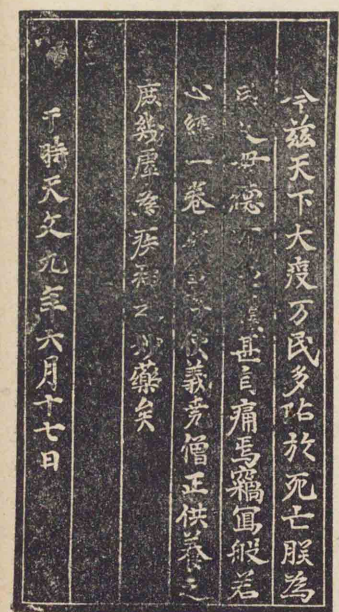 今茲天下大疫万民多阽於死亡朕為
民父母德不覆甚自痛焉竊寫般若
心經一卷使義堯僧正供養之
庶幾虖為疾病之妙藥矣
于時天文九年六月十七日